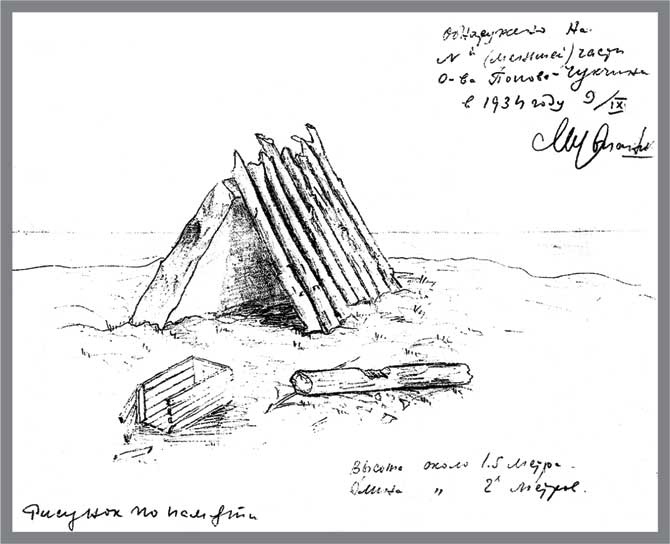 Обнаружено на
N й (меньшей) части
о-ва Попова-Чукчина
в 1934 году 9/IX
Высота около 1.5 метра.
Длина " 2х метров.
Рисунок по памяти